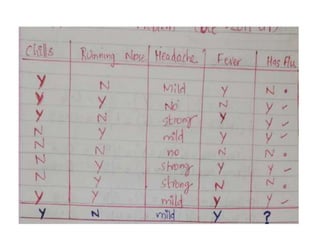 Chills Running Nose Headache Fever Has Flu
Y N Mild Y N
Y Y No N Y
Y N strong Y Y
N Y mild Y Y
N N no N N
N Y strong Y Y
N Y strong N N
Y Y mild Y Y
Y N mild Y ?